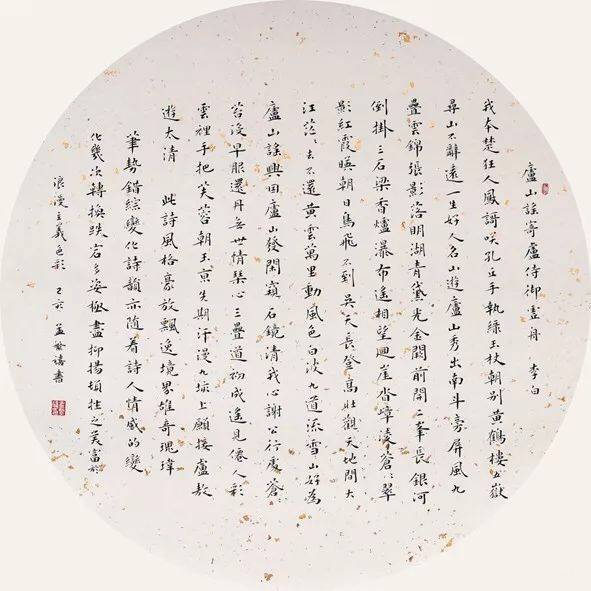 廬山謠寄盧侍御虛舟 李白
我本楚狂人鳳謌咲孔丘手執綠玉杖朝別黃鶴樓五嶽
尋山不辭遠一生好入名山遊廬山秀出南斗旁屏風九
疊雲錦張影落明湖青黛光金闕前開二峯長銀河
倒掛三石梁香爐瀑布遙相望迴崖沓嶂凌蒼〻翠
影紅霞暎朝日鳥飛不到吳天長登高壯觀天地間大
江茫〻去不還黃雲萬里動風色白波九道流雪山好為
廬山謠興因廬山發閑窺石鏡清我心謝公行處蒼
苔沒早服還丹無世情琴心三疊道初成遙見僊人彩
雲裡手把芙蓉朝玉京先期汗漫九垓上願接盧敖
遊太清 此詩風格豪放飄逸境界雄奇瑰瑋
筆勢錯綜變化詩韻亦隨着詩人情感的變
化幾次轉換跌宕多姿極盡抑揚頓挫之美富於
浪漫主義色彩 己亥 書